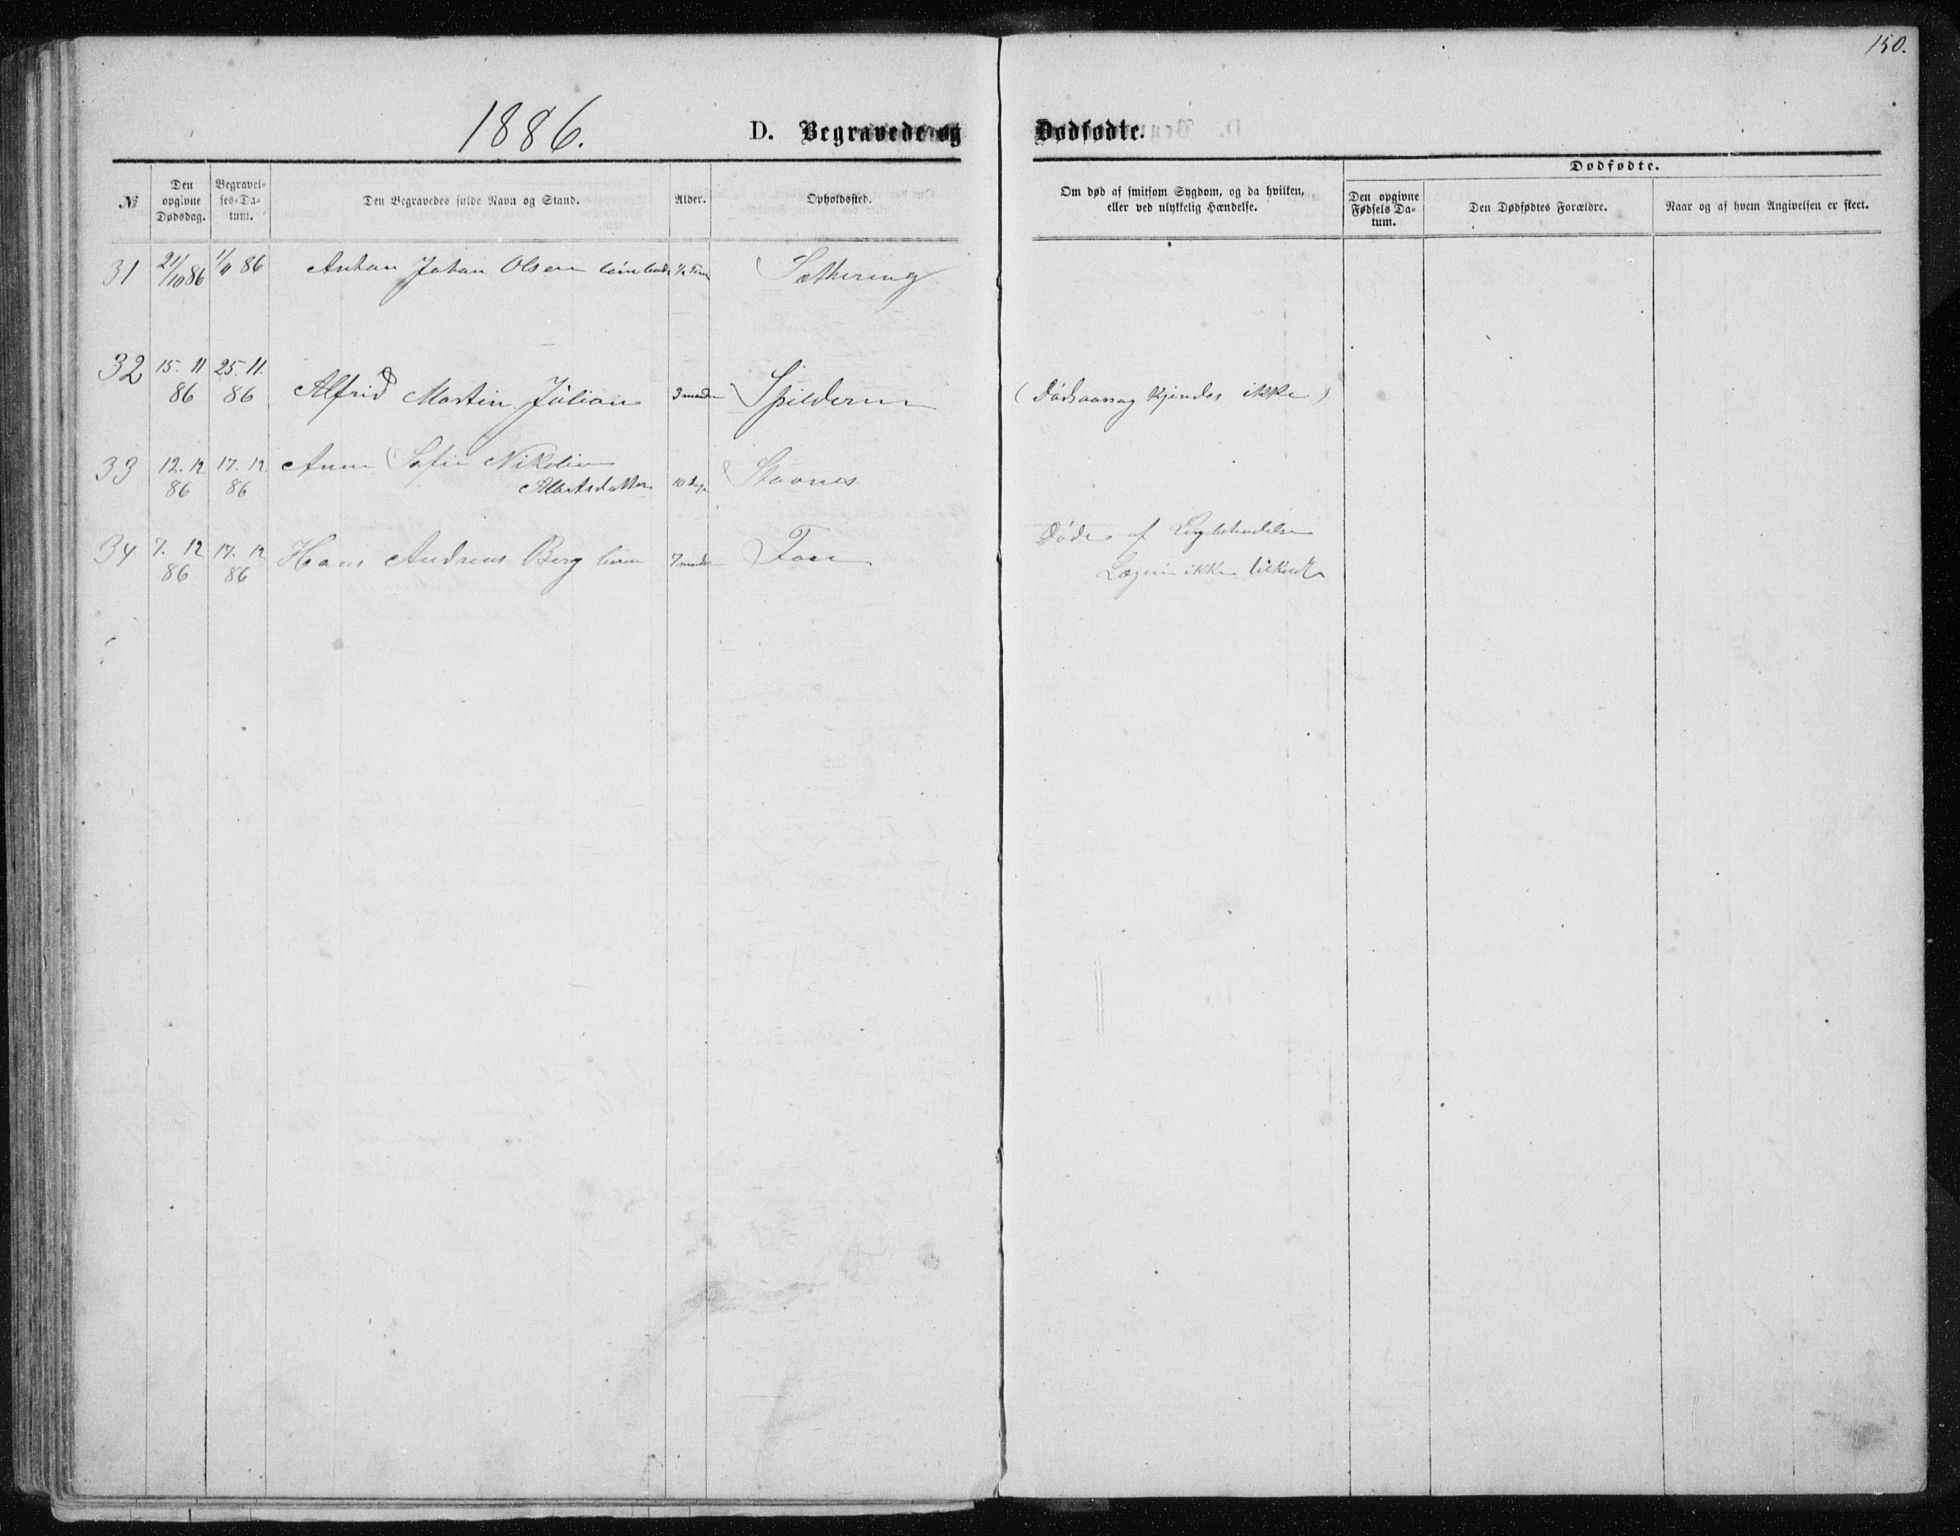 150.
1886.
D. Begravede og Dødfødte.
№
Den opgivne Dødsdag.
Begravelses-Datum.
Den Begravedes fulde Navn og Stand.
Alder.
Opholdssted.
Om død af smitsom Sygdom, og da hvilken, eller ved ulykkelig Hændelse.
Dødfødte.
Den opgivne Fødsels Datum.
Den Dødfødtes Forældre.
Naar og af hvem Angivelsen er skeet.
31 21/10 86 1/11 86 Anton Johan Olsen 1/2 Time Sæthering
32 15. 11 86 25. 11. 86 Alfrid Martin Julian 3 maader Spildern (Dødsaarsag kjendes ikke)
33 12. 12 86 17. 12 86 Anne Sofie Nikolin
Martsdatter 10 Dage Stavnes
34 7. 12 86 17. 12 86 Hans Andreas Berg 7 maader
Døde af
Lægen ikke tilkaldt